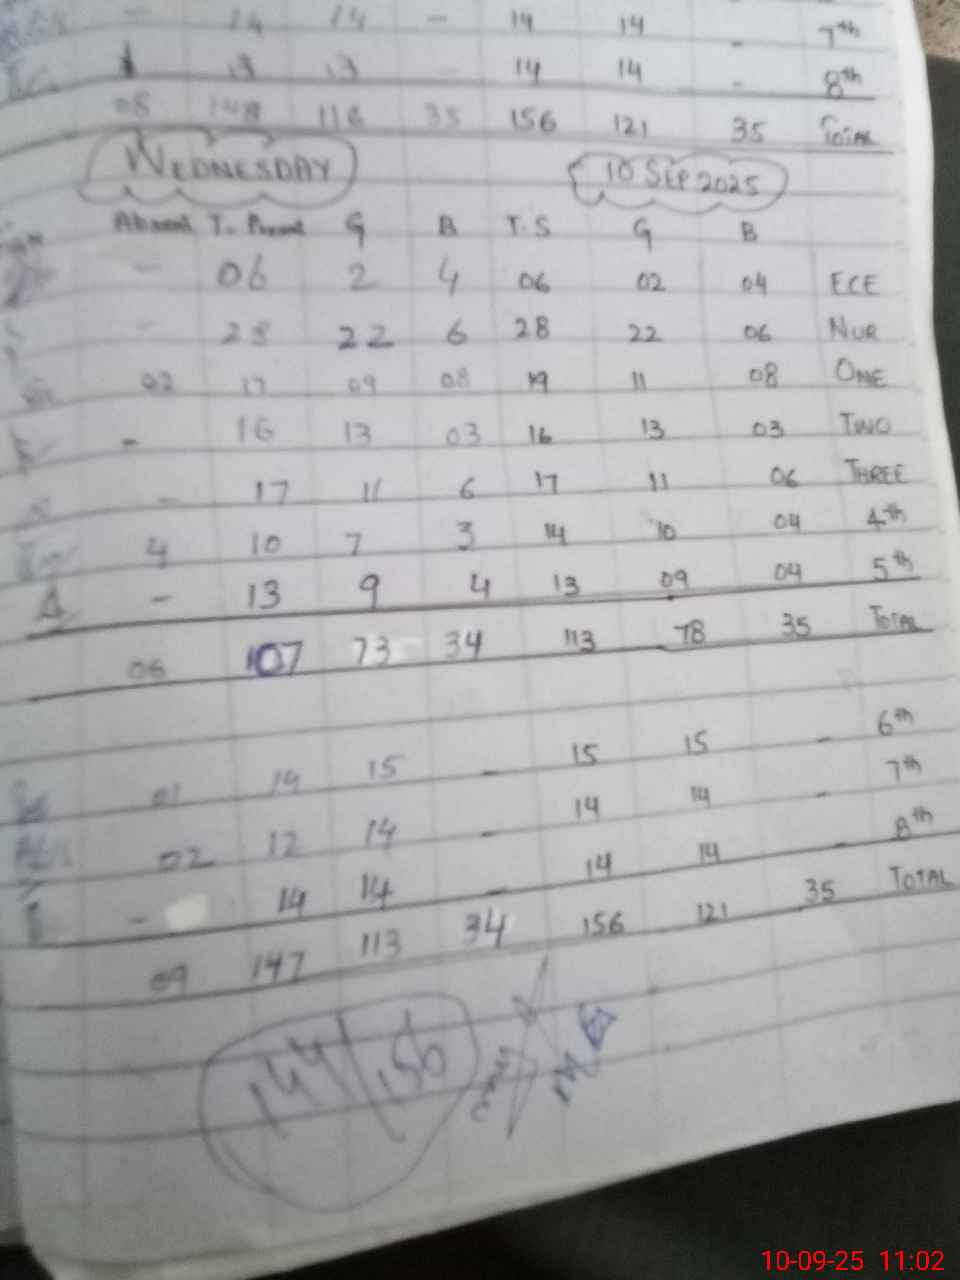 - 14 14 - 14 14 - 7th
13 13 - 14 14 - 8th
08 148 116 35 156 121 35 TOTAL
WEDNESDAY 10 SEP 2025
Absent T. Present G B T.S G B
- 06 2 4 06 02 04 ECE
- 28 22 6 28 22 06 NUR
02 17 09 08 19 11 08 ONE
- 16 13 03 16 13 03 TWO
- 17 11 6 17 11 06 THREE
4 10 7 3 14 10 04 4th
- 13 9 4 13 09 04 5th
06 107 73 34 113 78 35 TOTAL
01 14 15 - 15 15 - 6th
02 12 14 - 14 14 - 7th
- 14 14 - 14 14 - 8th
09 147 113 34 156 121 35 TOTAL
144/156
10-09-25 11:02